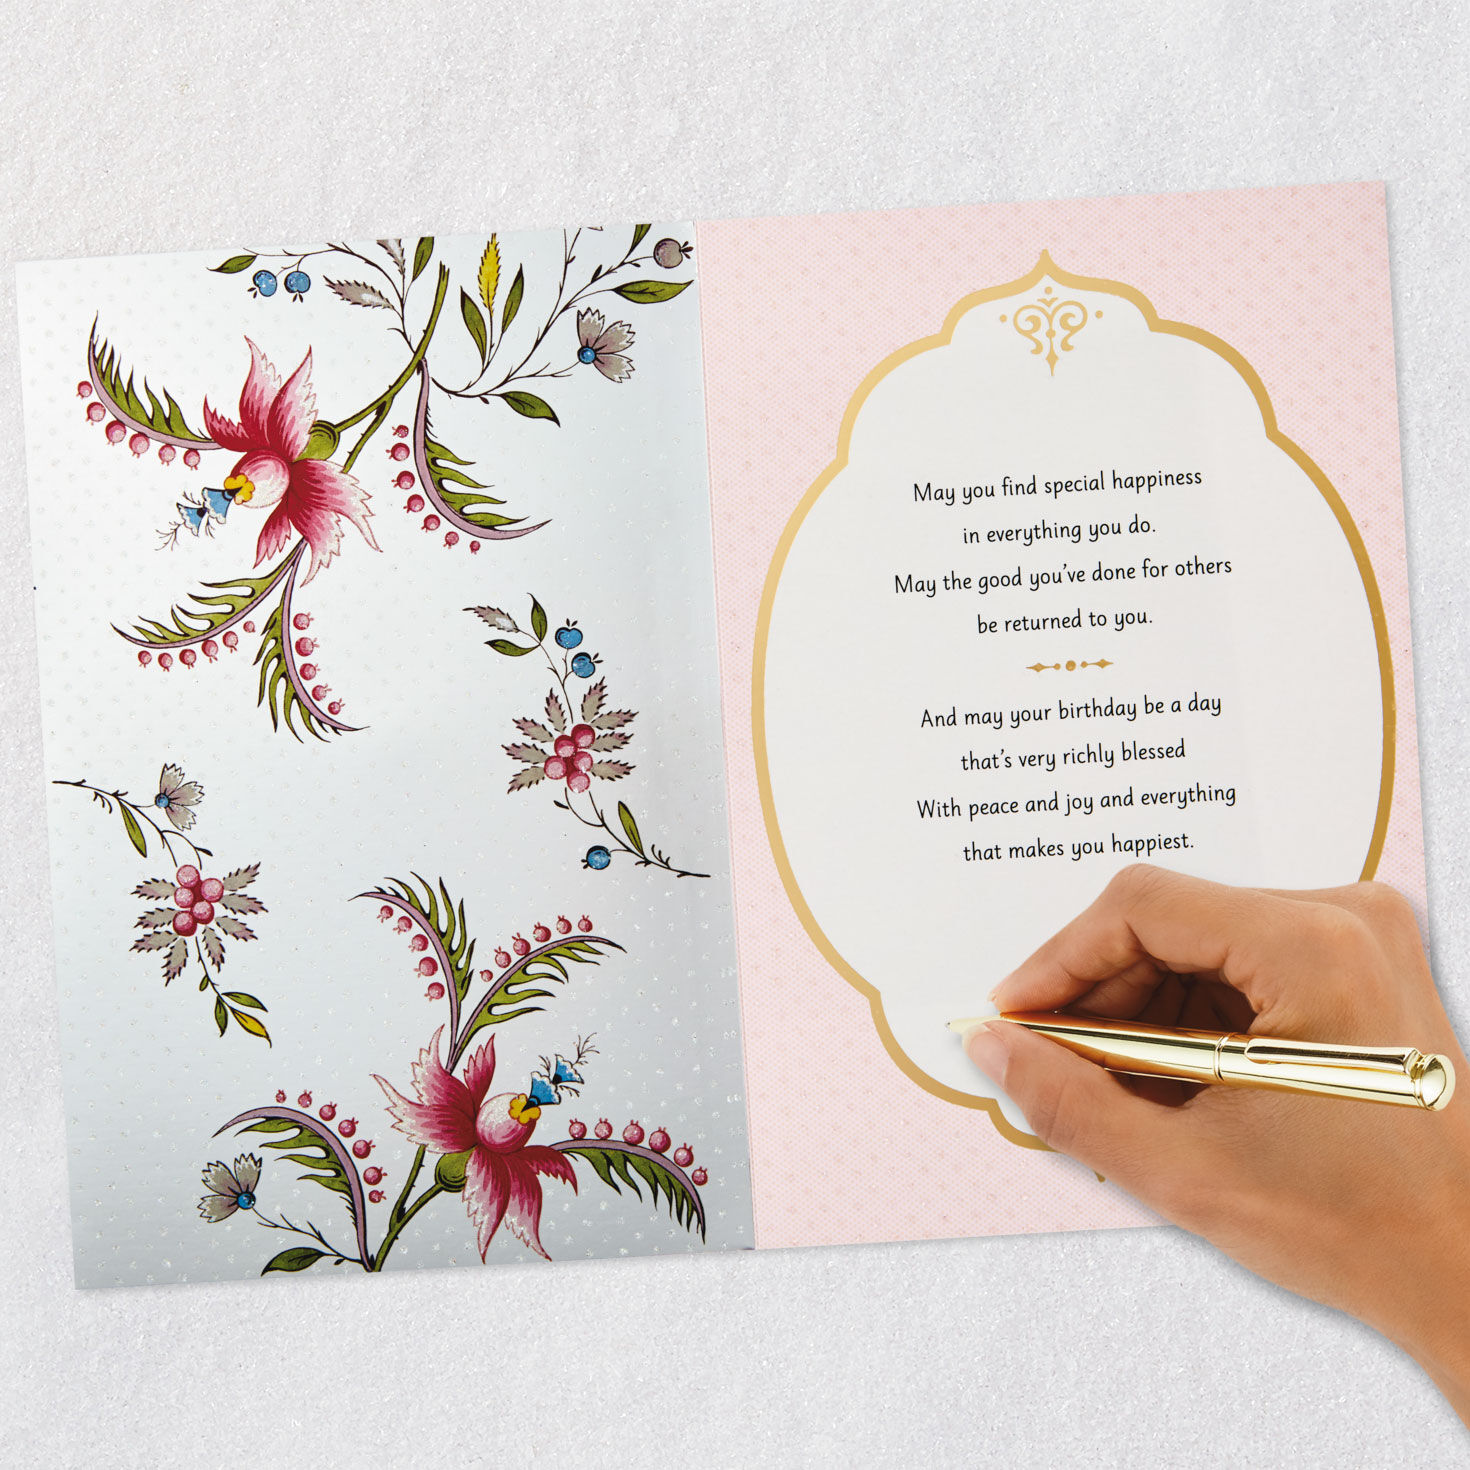 May you find special happiness
in everything you do.
May the good you've done for others
be returned to you.
And may your birthday be a day
that's very richly blessed
With peace and joy and everything
that makes you happiest.